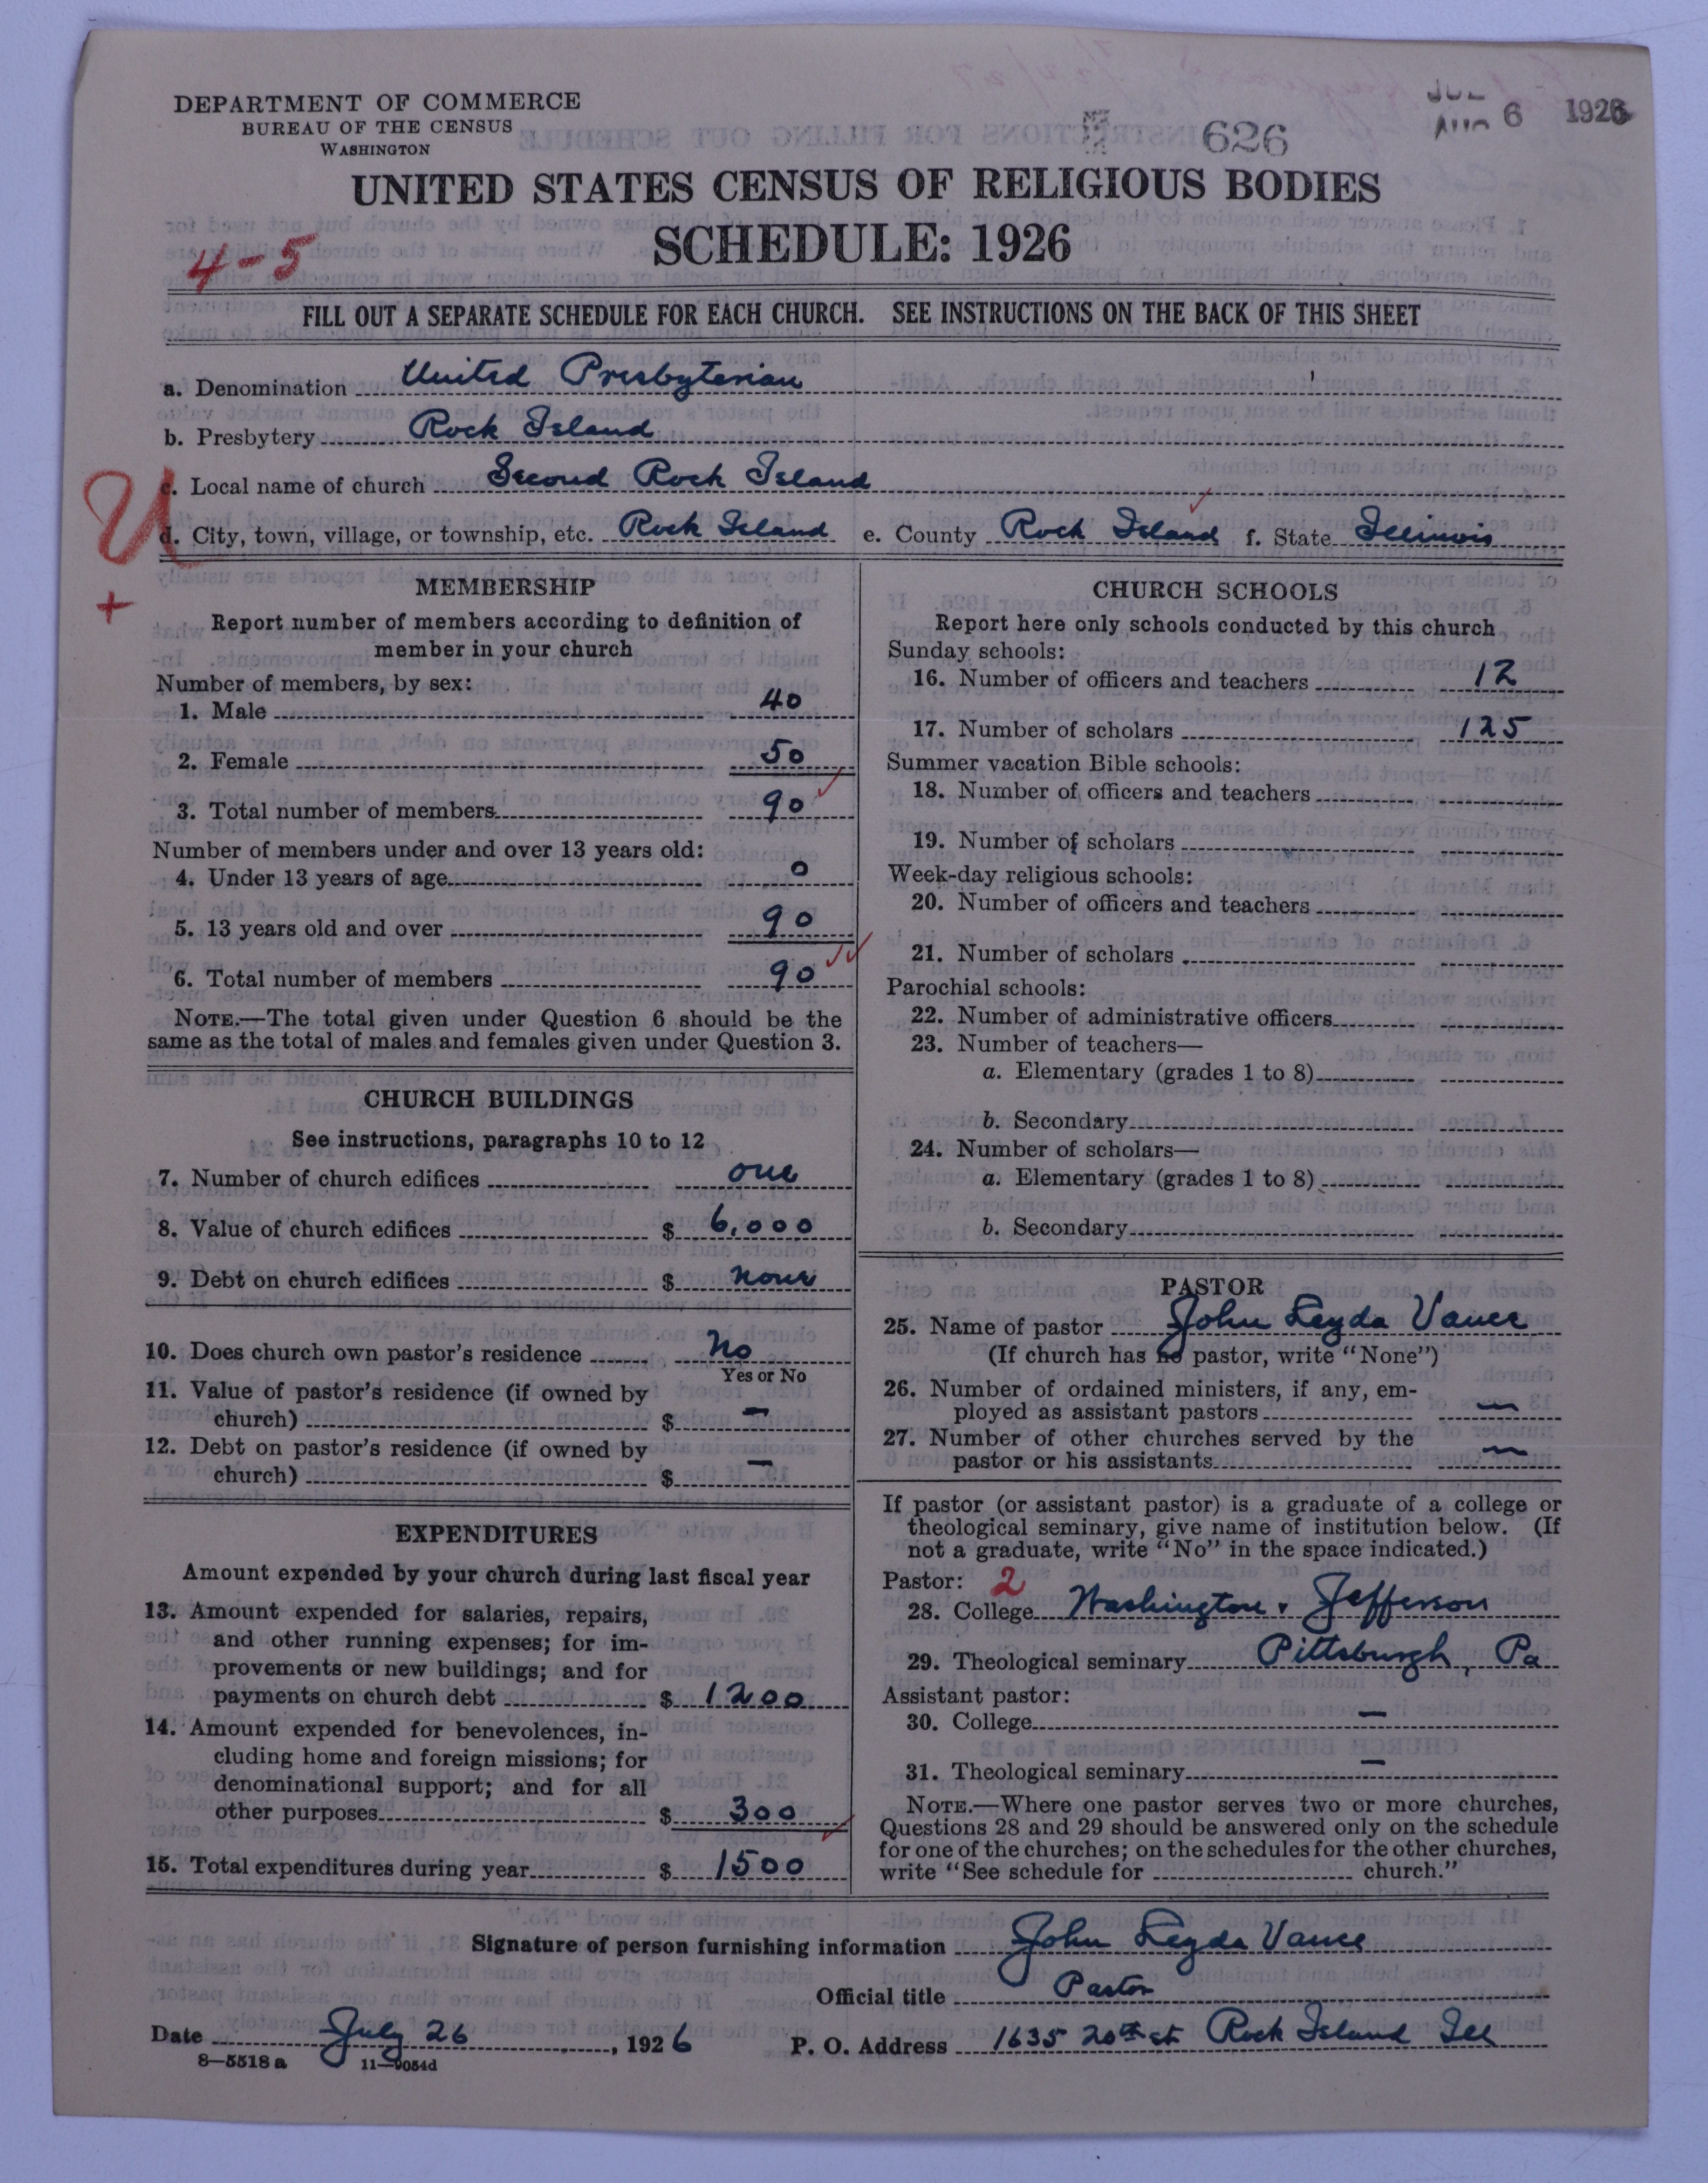 DEPARTMENT OF COMMERCE
BUREAU OF THE CENSUS
WASHINGTON
626
6 1926
UNITED STATES CENSUS OF RELIGIOUS BODIES
SCHEDULE: 1926
4-5
FILL OUT A SEPARATE SCHEDULE FOR EACH CHURCH. SEE INSTRUCTIONS ON THE BACK OF THIS SHEET
a. Denomination United Presbyterian
b. Presbytery Rock Island
c. Local name of church Second Rock Island
U
d. City, town, village, or township, etc. Rock Island e. County Rock Island f. State Illinois
+
MEMBERSHIP
Report number of members according to definition of
member in your church
Number of members, by sex:
1. Male 40
2. Female 50
3. Total number of members 90
Number of members under and over 13 years old:
4. Under 13 years of age 0
5. 13 years old and over 90
6. Total number of members 90
NOTE.—The total given under Question 6 should be the
same as the total of males and females given under Question 3.
CHURCH BUILDINGS
See instructions, paragraphs 10 to 12
7. Number of church edifices one
8. Value of church edifices $ 6,000
9. Debt on church edifices $ none
10. Does church own pastor's residence No
Yes or No
11. Value of pastor's residence (if owned by
church) $ —
12. Debt on pastor's residence (if owned by
church) $ —
EXPENDITURES
Amount expended by your church during last fiscal year
13. Amount expended for salaries, repairs,
and other running expenses; for im-
provements or new buildings; and for
payments on church debt $ 1200
14. Amount expended for benevolences, in-
cluding home and foreign missions; for
denominational support; and for all
other purposes $ 300
15. Total expenditures during year $ 1500
CHURCH SCHOOLS
Report here only schools conducted by this church
Sunday schools:
16. Number of officers and teachers 12
17. Number of scholars 125
Summer vacation Bible schools:
18. Number of officers and teachers
19. Number of scholars
Week-day religious schools:
20. Number of officers and teachers
21. Number of scholars
Parochial schools:
22. Number of administrative officers
23. Number of teachers—
a. Elementary (grades 1 to 8)
b. Secondary
24. Number of scholars—
a. Elementary (grades 1 to 8)
b. Secondary
PASTOR
25. Name of pastor John Leyda Vance
(If church has no pastor, write "None")
26. Number of ordained ministers, if any, em-
ployed as assistant pastors —
27. Number of other churches served by the
pastor or his assistants —
If pastor (or assistant pastor) is a graduate of a college or
theological seminary, give name of institution below. (If
not a graduate, write "No" in the space indicated.)
Pastor: 2
28. College Washington & Jefferson
29. Theological seminary Pittsburgh, Pa
Assistant pastor:
30. College —
31. Theological seminary —
NOTE.—Where one pastor serves two or more churches,
Questions 28 and 29 should be answered only on the schedule
for one of the churches; on the schedules for the other churches,
write "See schedule for church."
Signature of person furnishing information John Leyda Vance
Official title Pastor
Date July 26, 1926 P. O. Address 1635 20th st Rock Island Ill
8—5518 a 11—9054d